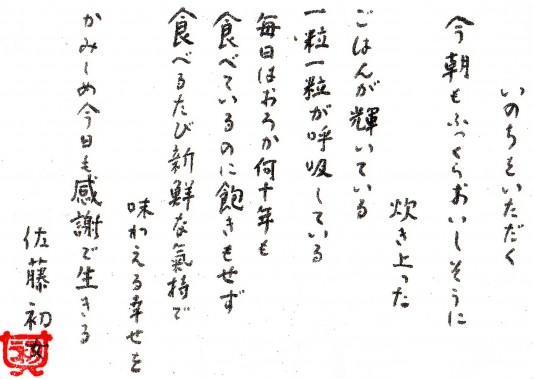 いのちをいただく
今朝もふっくらおいしそうに
炊き上った
ごはんが輝いている
一粒一粒が呼吸している
毎日はおろか何十年も
食べているのに飽きもせず
食べるたび新鮮な氣持で
味わえる幸せを
かみしめ今日も感謝で生きる
佐藤初女